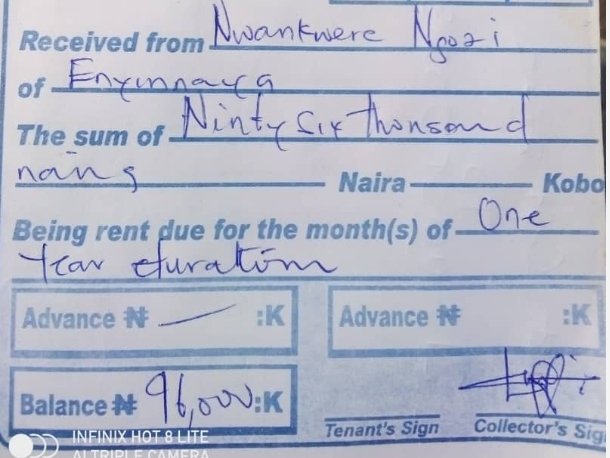 Received from Nwankwere Ngozi
of Enyinnaya
The sum of Ninty Six Thousand
naira Naira Kobo
Being rent due for the month(s) of One
Year duration
Advance ₦ — :K Advance ₦ :K
Balance ₦ 96,000:K
Tenant's Sign Collector's Sig
INFINIX HOT 8 LITE
AI TRIPLE CAMERA